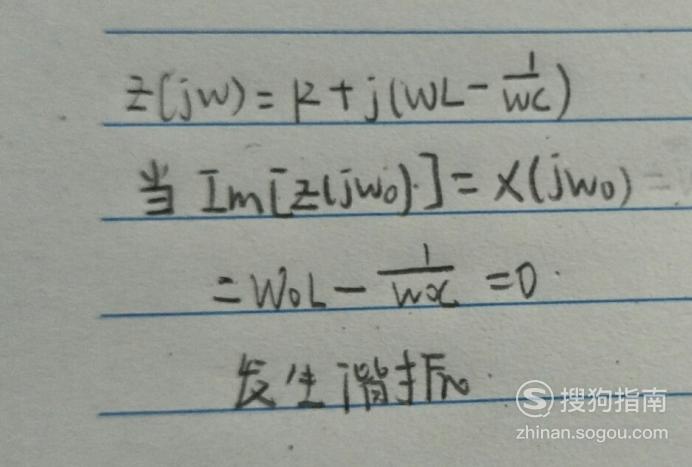 Z(jw)=R+j(wL-1/wC)
当 Im[Z(jw₀)]=X(jw₀)=
=w₀L-1/w₀C=0.
发生谐振.
搜狗指南
zhinan.sogou.com